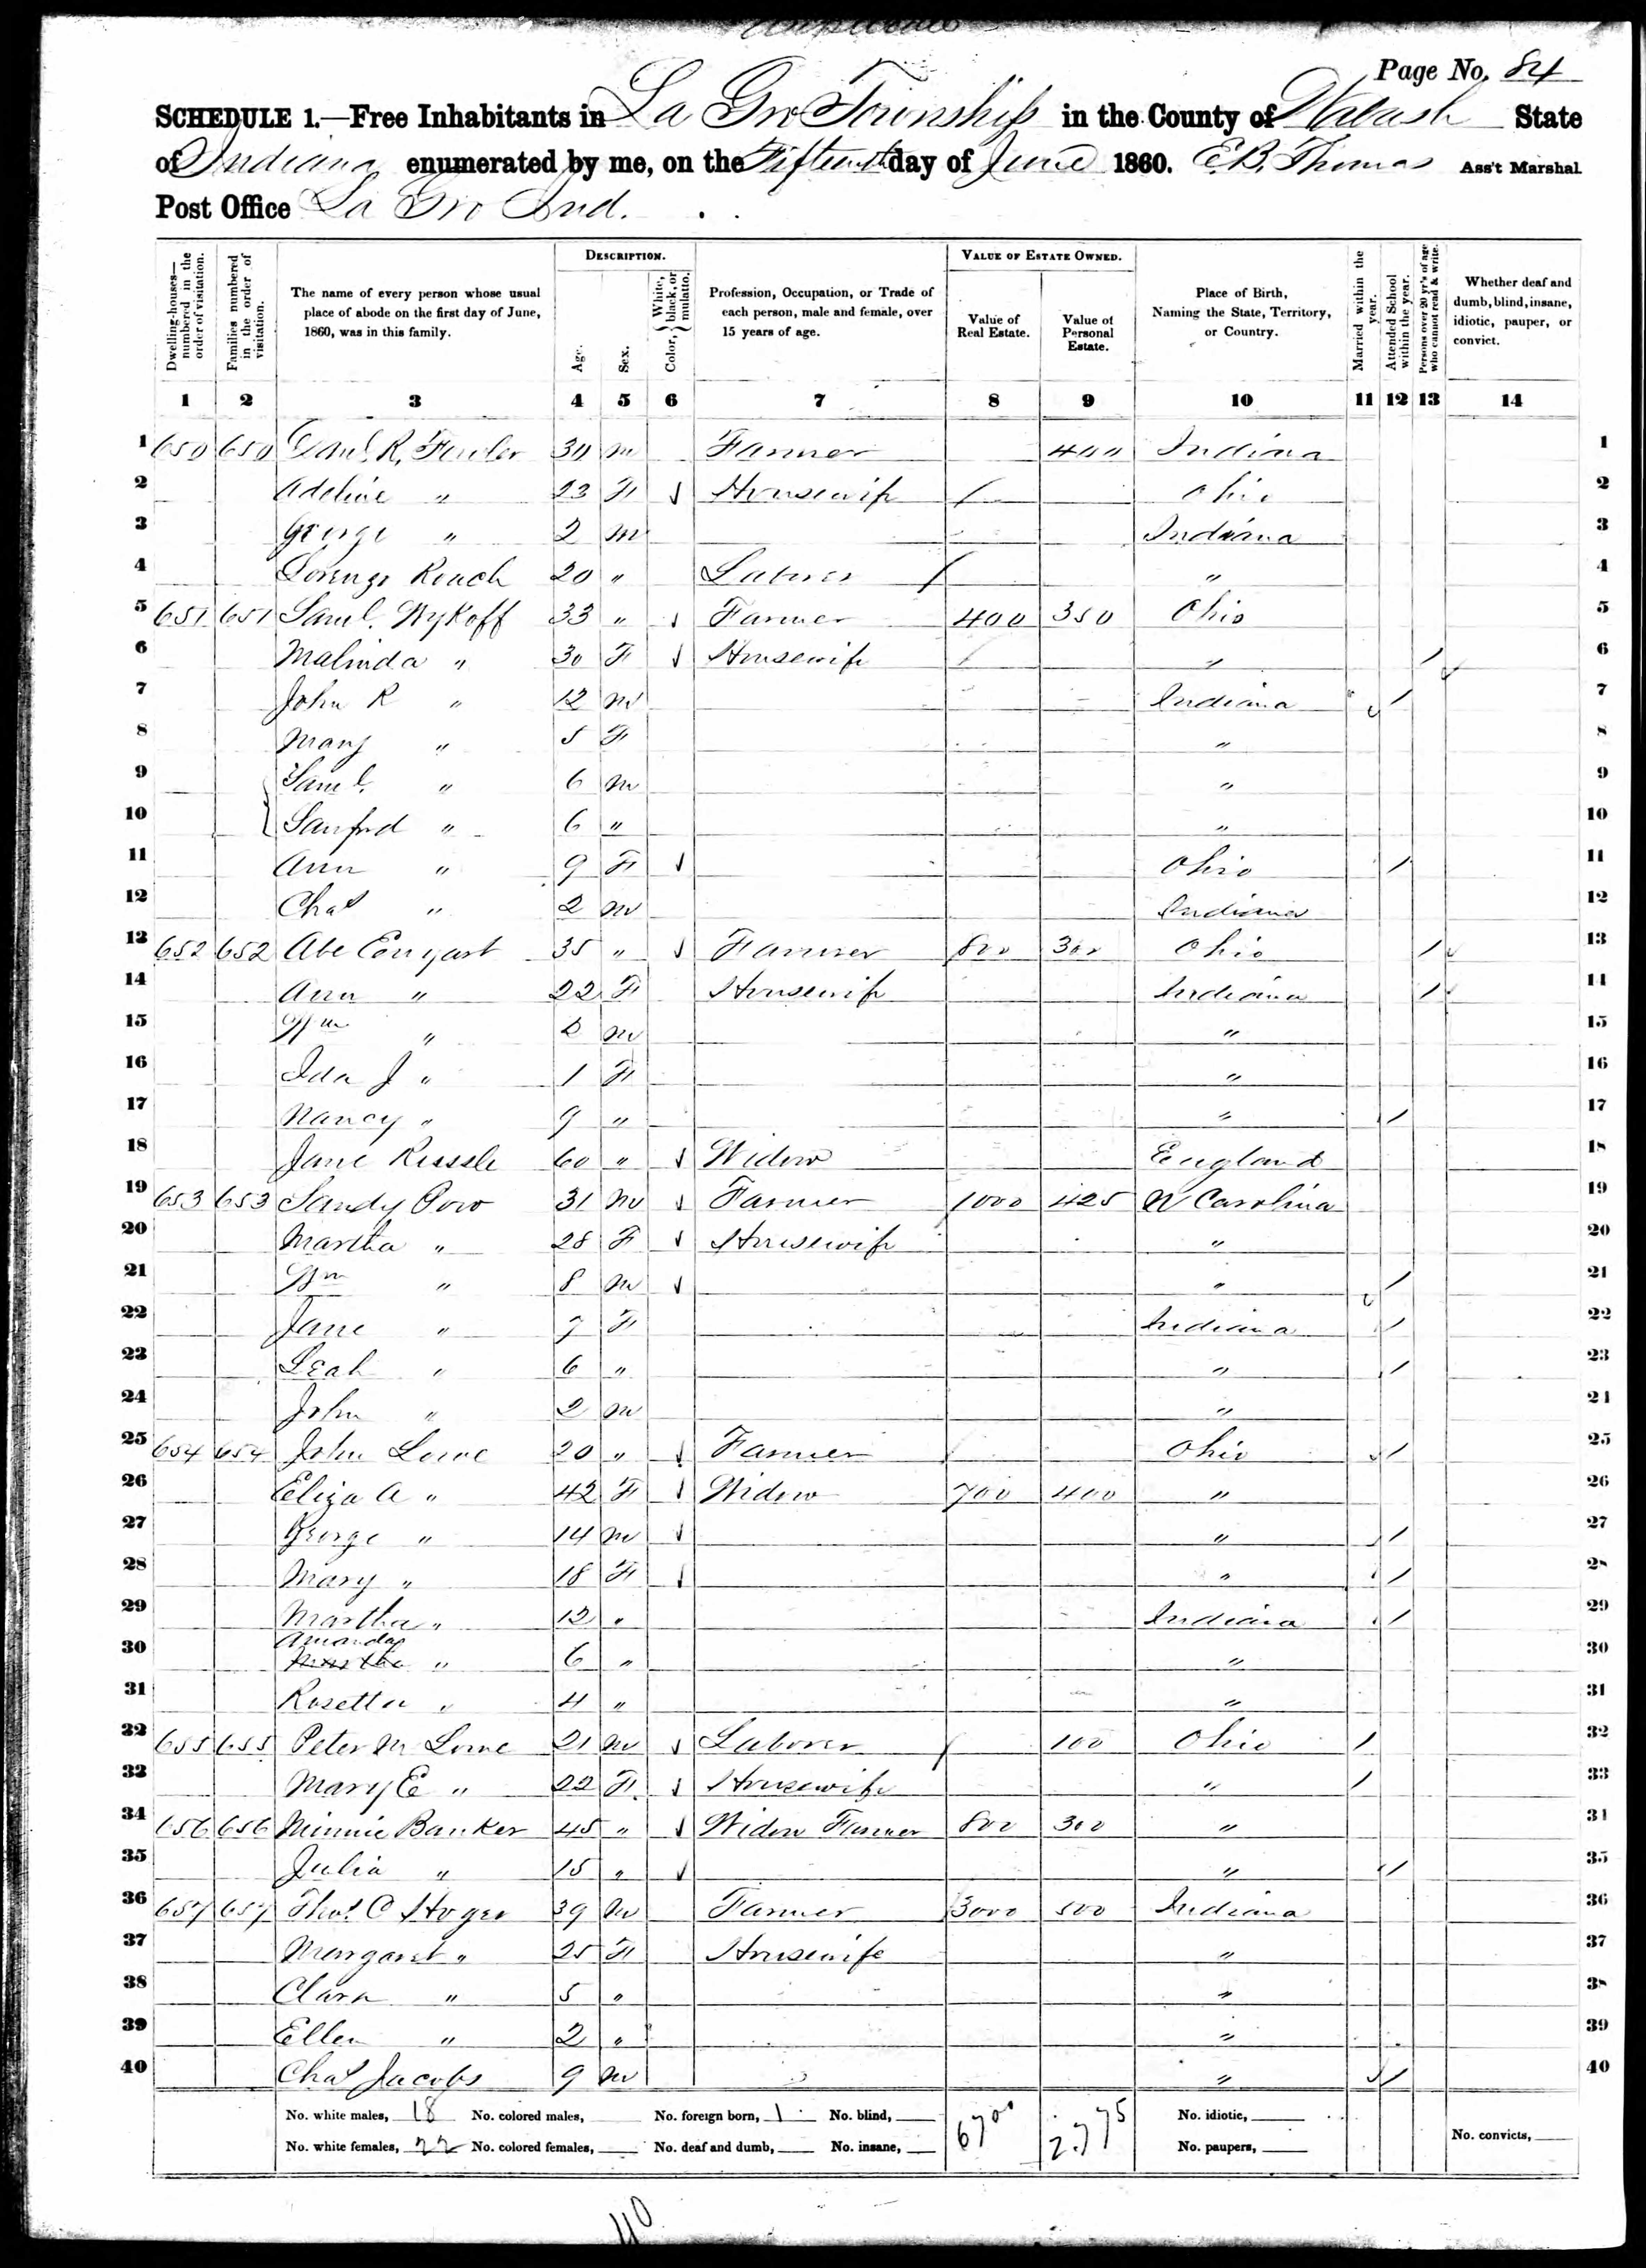 Page No. 84
SCHEDULE 1.—Free Inhabitants in La Gro Township in the County of Wabash State
of Indiana enumerated by me, on the Fifteenth day of June 1860. E.B. Thomas Ass't Marshal.
Post Office La Gro Ind.
Dwelling-houses—numbered in the order of visitation. Families numbered in the order of visitation. The name of every person whose usual place of abode on the first day of June, 1860, was in this family. DESCRIPTION. Age. Sex. Color, White, black, or mulatto. Profession, Occupation, or Trade of each person, male and female, over 15 years of age. VALUE OF ESTATE OWNED. Value of Real Estate. Value of Personal Estate. Place of Birth, Naming the State, Territory, or Country. Married within the year. Attended School within the year. Persons over 20 yr's of age who cannot read & write. Whether deaf and dumb, blind, insane, idiotic, pauper, or convict.
1 2 3 4 5 6 7 8 9 10 11 12 13 14
1 650 650 Saml. R. Fowler 30 m Farmer 400 Indiana 1
2 Adeline " 23 F Housewife Ohio 2
3 George " 2 m Indiana 3
4 Lorenzo Roach 20 " Laborer " 4
5 651 651 Saml. Wykoff 33 " Farmer 400 350 Ohio 5
6 Malinda " 30 F Housewife " / 6
7 John R " 12 m Indiana / 7
8 Mary " 5 F " 8
9 Saml. " 6 m " 9
10 Sanford " 6 " " 10
11 Ann " 9 F Ohio / 11
12 Chas " 2 m Indiana 12
13 652 652 Abe Enyart 35 " Farmer 800 300 Ohio / 13
14 Ann " 22 F Housewife Indiana / 14
15 Wm " m " 15
16 Ida J " 1 F " 16
17 Nancy " 9 " " / 17
18 Jane Russle 60 " Widow England 18
19 653 653 Sandy Poro 31 m Farmer 1000 425 N Carolina 19
20 Martha " 28 F Housewife " 20
21 Wm " 8 m " / 21
22 Jane " 7 F Indiana / 22
23 Leah " 6 " " / 23
24 John " 2 m " 24
25 654 654 John Lowe 20 " Farmer Ohio / 25
26 Eliza A " 42 F Widow 700 400 " 26
27 George " 14 m " / 27
28 Mary " 18 F " / 28
29 Martha " 12 " Indiana / 29
30 Amanda Martha " 6 " " 30
31 Rosetta " 4 " " 31
32 655 655 Peter M Lowe 21 m Laborer 100 Ohio / 32
33 Mary E " 22 F Housewife " / 33
34 656 656 Minnie Banker 45 " Widow Farmer 800 300 " 34
35 Julia " 15 " " / 35
36 657 657 Thos. C 39 m Farmer 3000 500 Indiana 36
37 Margaret " 25 F Housewife " 37
38 Clara " 5 " " 38
39 Ellen " 2 " " 39
40 Chas Jacobs 9 m " / 40
No. white males, 18 No. colored males, No. foreign born, 1 No. blind, 6700 2.775 No. idiotic,
No. white females, 22 No. colored females, No. deaf and dumb, No. insane, No. paupers, No. convicts,
40